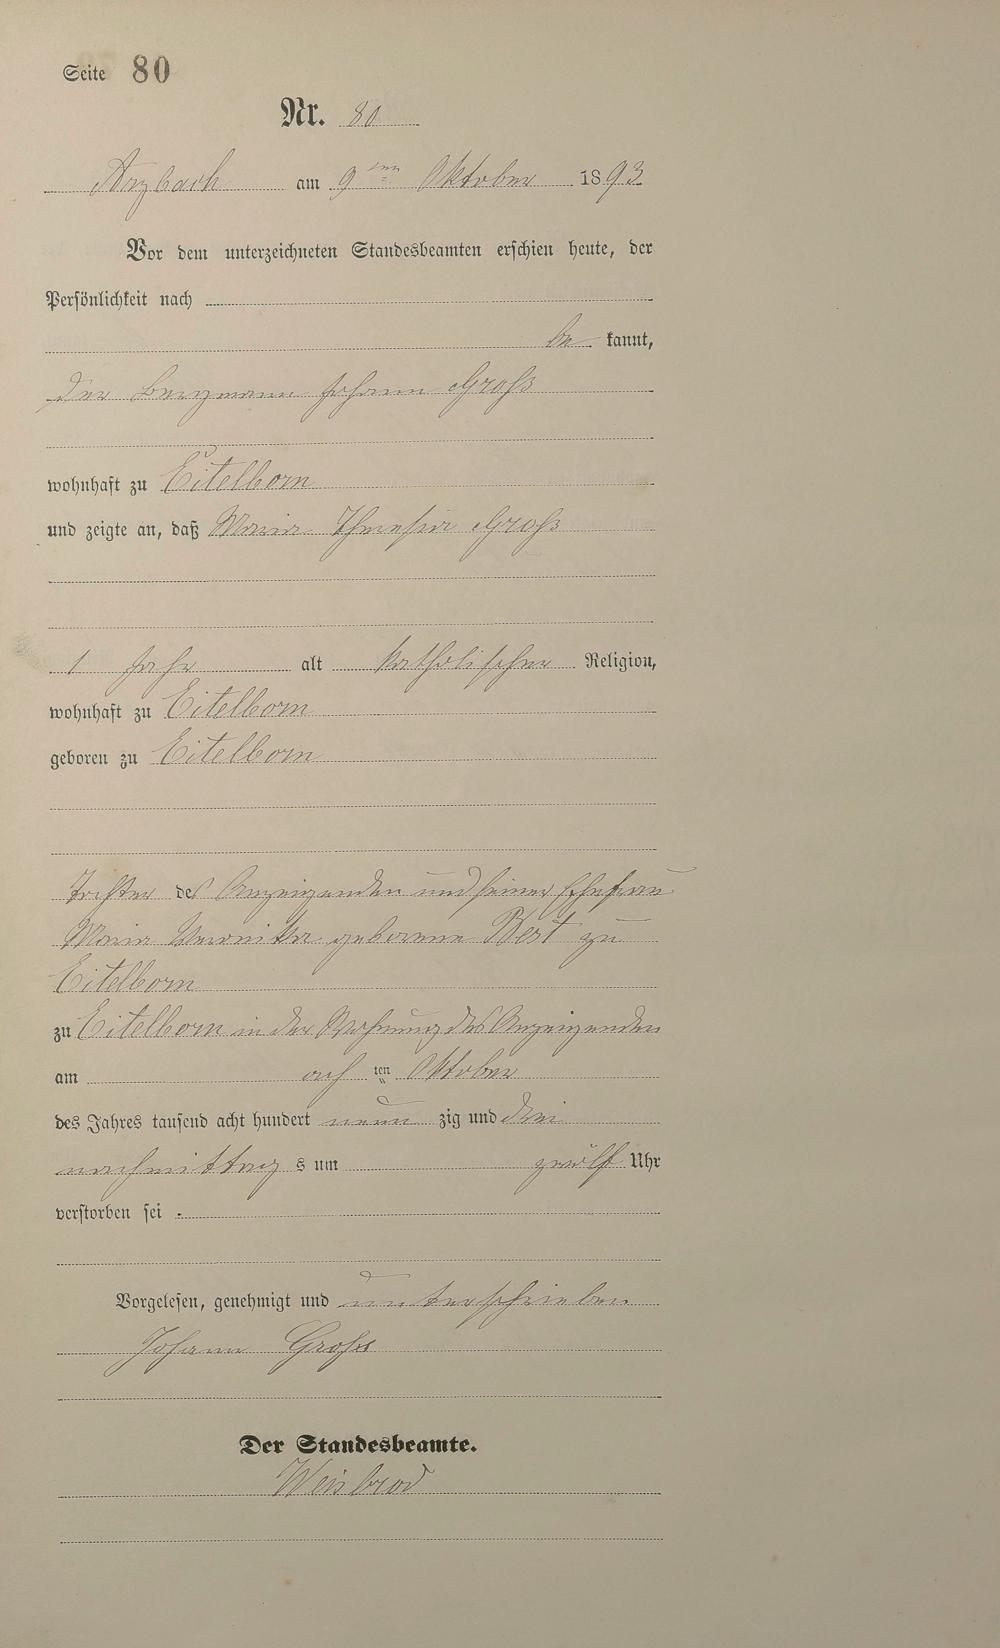 Seite 80
Nr. 80
Arzbach am 9ten Oktober 1893
Vor dem unterzeichneten Standesbeamten erschien heute, der
Persönlichkeit nach
be kannt,
der Bergmann Johann Groß
wohnhaft zu Eitelborn
und zeigte an, daß Maria Theresia Groß
1 Jahr alt katholischer Religion,
wohnhaft zu Eitelborn
geboren zu Eitelborn
Tochter des Anzeigenden und seiner Ehefrau
Maria Veronika geborene Best zu
Eitelborn
zu Eitelborn in der Wohnung des Anzeigenden
am ach ten Oktober
des Jahres tausend acht hundert neun zig und drei
nachmittag s um zwölf Uhr
verstorben sei .
Vorgelesen, genehmigt und unterschrieben
Johann Groß
Der Standesbeamte.
Weisbrod